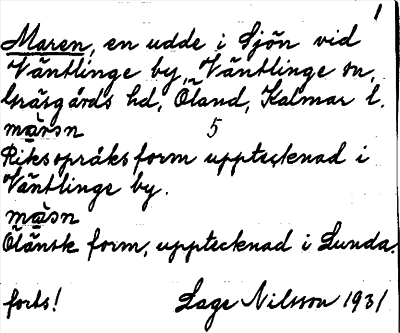 1
Maren, en udde i Sjön vid
Ventlinge by, Ventlinge sn,
Gräsgårds hd, Öland, Kalmar l.
5
Riksspråksform upptecknad i
Ventlinge by.
Öländsk form, upptecknad i Lunda.
forts! Lage Nilsson 1931